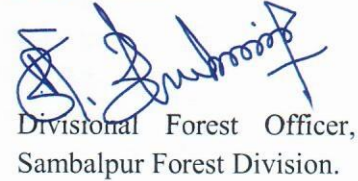 Divisional Forest Officer,
Sambalpur Forest Division.